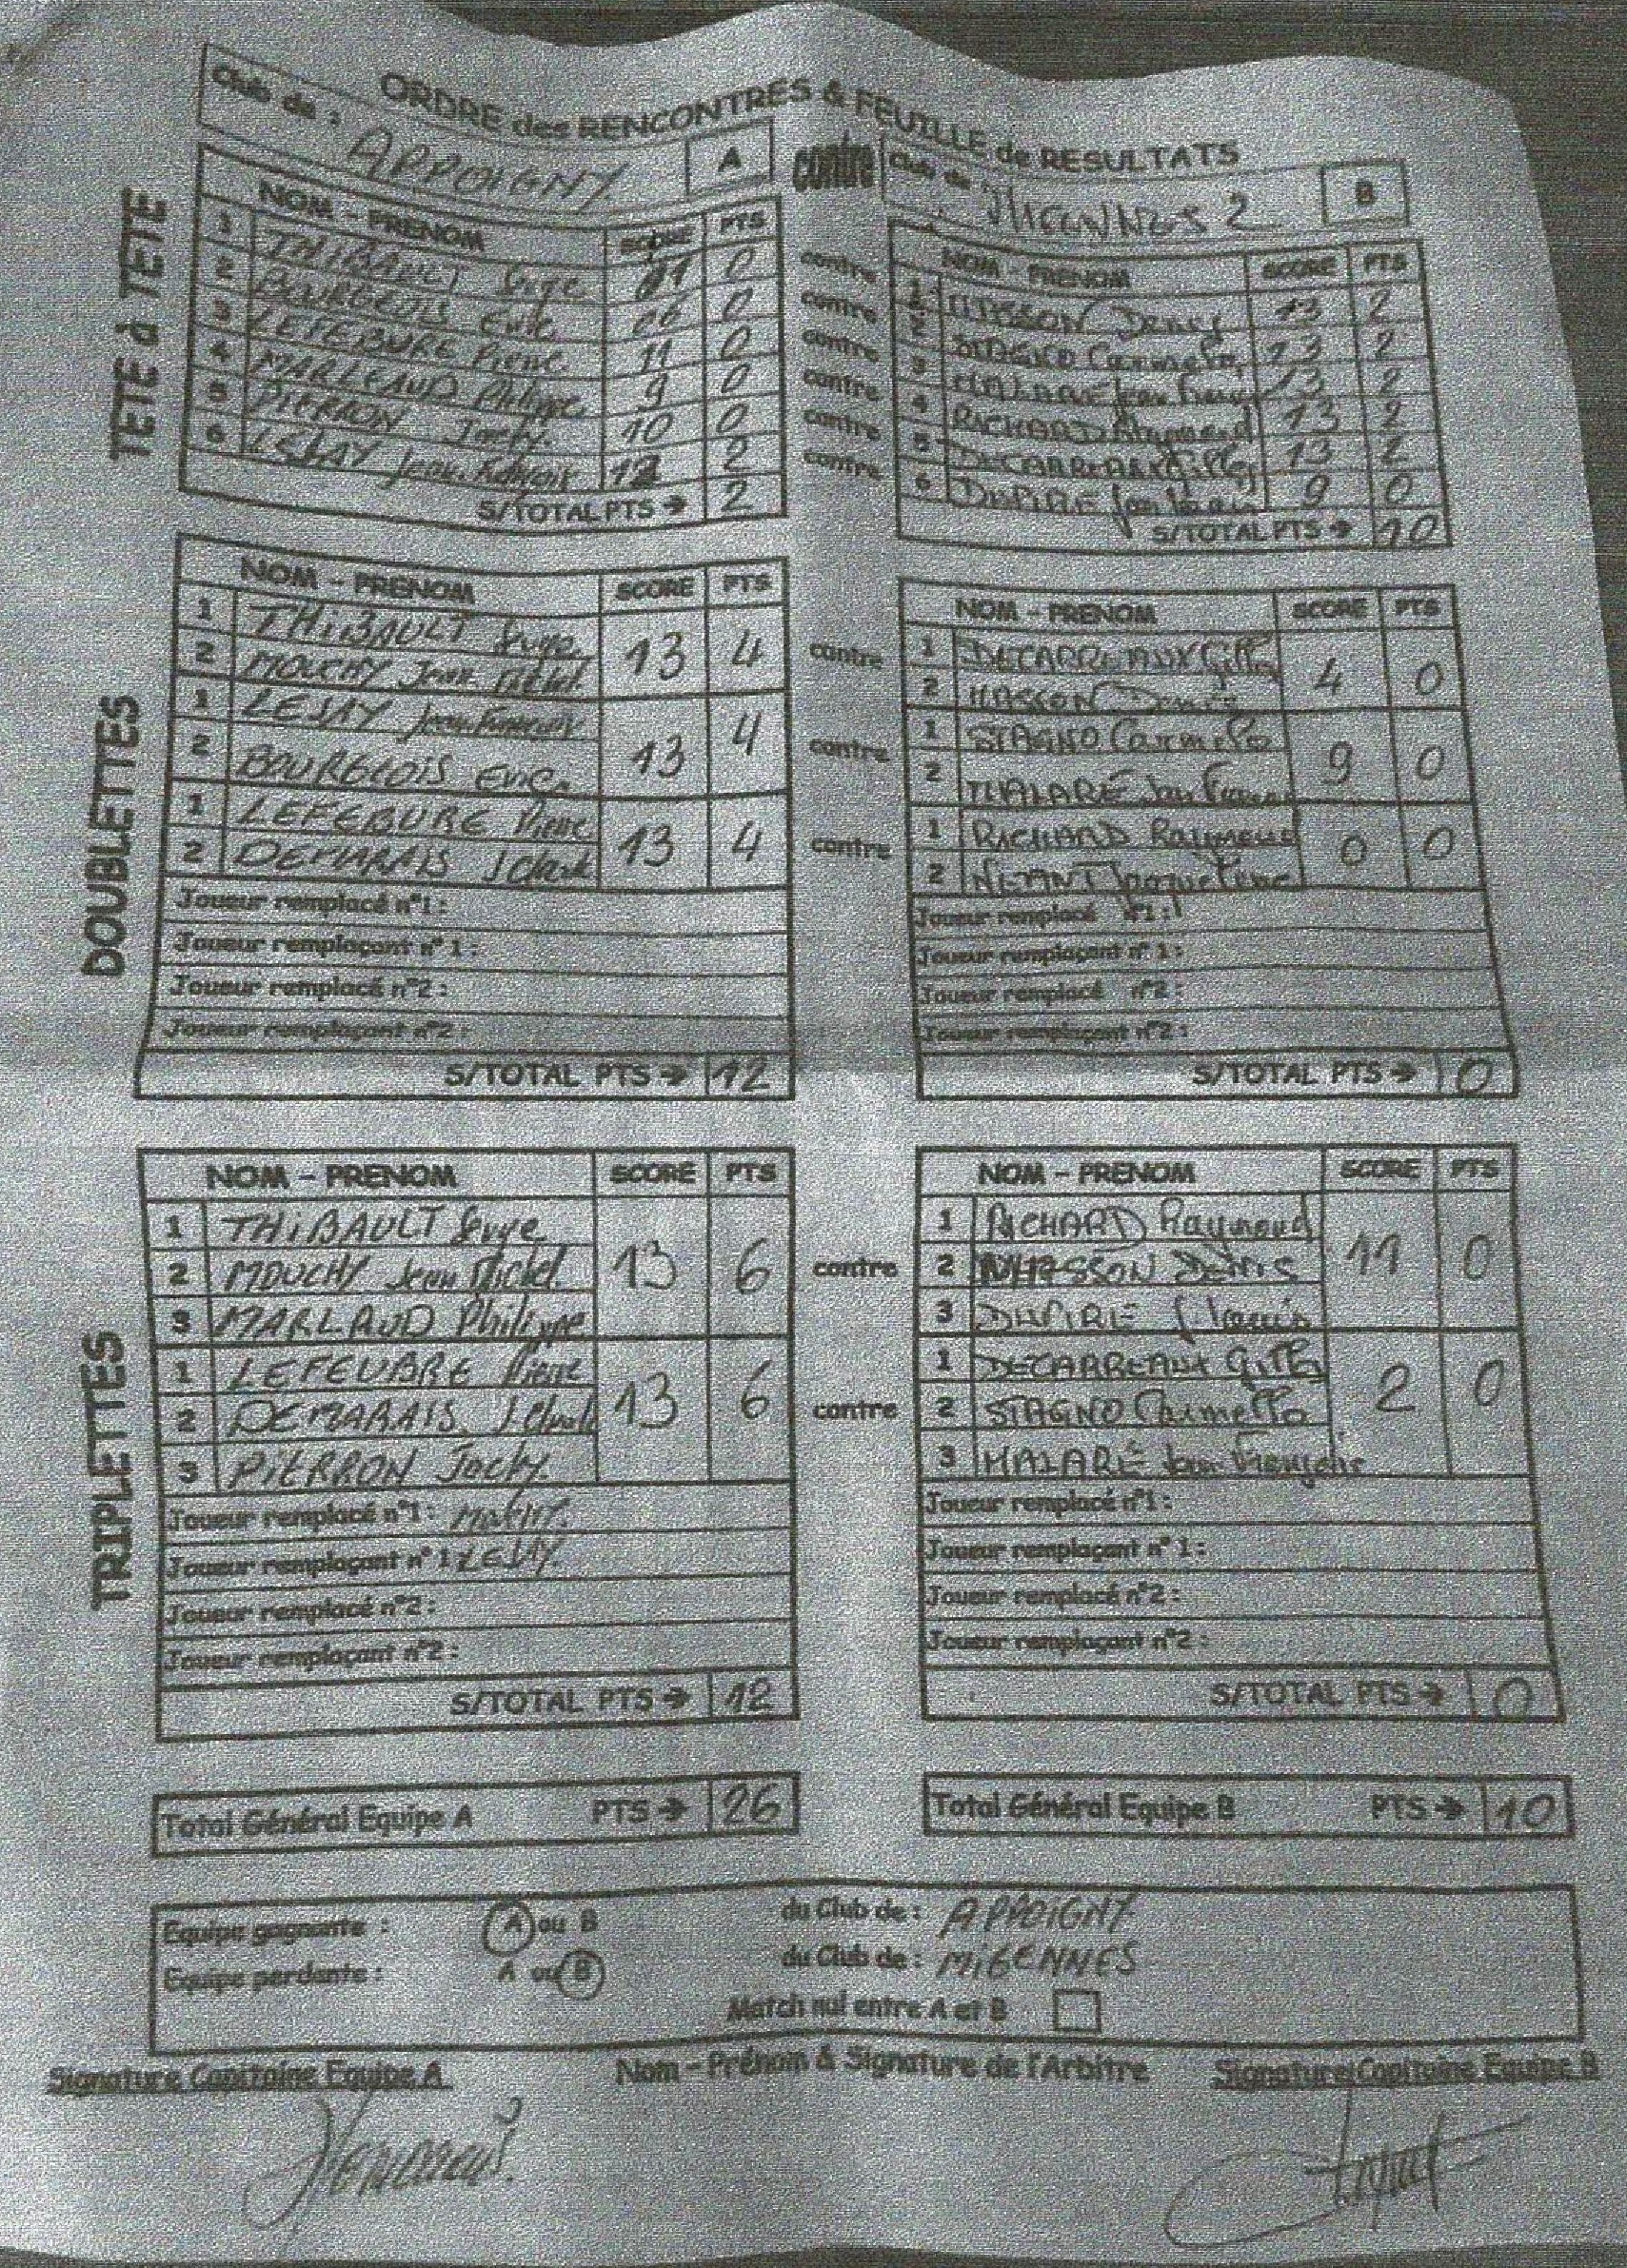 ORDRE des RENCONTRES & FEUILLE de RESULTATS
Club de : APPOIGNY A contre Club de : 2 B
TETE à TETE
NOM - PRENOM SCORE PTS
1 THIBAULT 0
2 BOURGEOIS Eric 06 0
3 LEFEBURE Pierre 11 0
4 MARLEAUD Philippe 9 0
5 PIERRON Jacky. 10 0
6 LESAY Jean. François 2
S/TOTAL PTS → 2
contre
contre
contre
contre
contre
contre
NOM - PRENOM SCORE PTS
1 Denis 13 2
2 STAGNO Carmelo 13 2
3 MALARE Jean 13 2
4 RICHARD Raymond 13 2
5 DECARREAUX Gilles 13 2
6 9 0
S/TOTAL PTS → 10
DOUBLETTES
NOM - PRENOM SCORE PTS
1 THIBAULT 13 4
2 MOUCHY Jean Michel
1 LESAY Jean 13 4
2 BOURGEOIS Eric
1 LEFEBURE Pierre 13 4
2 DEMARAIS
Joueur remplacé n°1 :
Joueur remplaçant n° 1 :
Joueur remplacé n°2 :
Joueur remplaçant n°2 :
S/TOTAL PTS → 12
contre
contre
contre
NOM - PRENOM SCORE PTS
1 DECARREAUX 4 0
2 Denis
1 STAGNO Carmelo 9 0
2 Jean
1 RICHARD Raymond 0 0
2 Jaqueline
Joueur remplacé n°1 :
Joueur remplaçant n° 1 :
Joueur remplacé n°2 :
Joueur remplaçant n°2 :
S/TOTAL PTS → 0
TRIPLETTES
NOM - PRENOM SCORE PTS
1 THIBAULT 13 6
2 MOUCHY Jean Michel
3 MARLAUD Philippe
1 LEFEUBRE Pierre 13 6
2 DEMARAIS
3 PIERRON Jacky
Joueur remplacé n°1 :
Joueur remplaçant n° 1 : LESAY
Joueur remplacé n°2 :
Joueur remplaçant n°2 :
S/TOTAL PTS → 12
contre
contre
NOM - PRENOM SCORE PTS
1 RICHARD Raymond 11 0
2 DENIS
3
1 DECARREAUX 2 0
2 STAGNO Carmello
3 MALARE Jean François
Joueur remplacé n°1 :
Joueur remplaçant n° 1 :
Joueur remplacé n°2 :
Joueur remplaçant n°2 :
S/TOTAL PTS → 0
Total Général Equipe A PTS → 26
Total Général Equipe B PTS → 10
Equipe gagnante : A ou B du Club de : APPOIGNY
Equipe perdante : A ou B du Club de : MIGENNES
Match nul entre A et B
Signature Capitaine Equipe A Nom - Prénom & Signature de l'Arbitre Signature Capitaine Equipe B